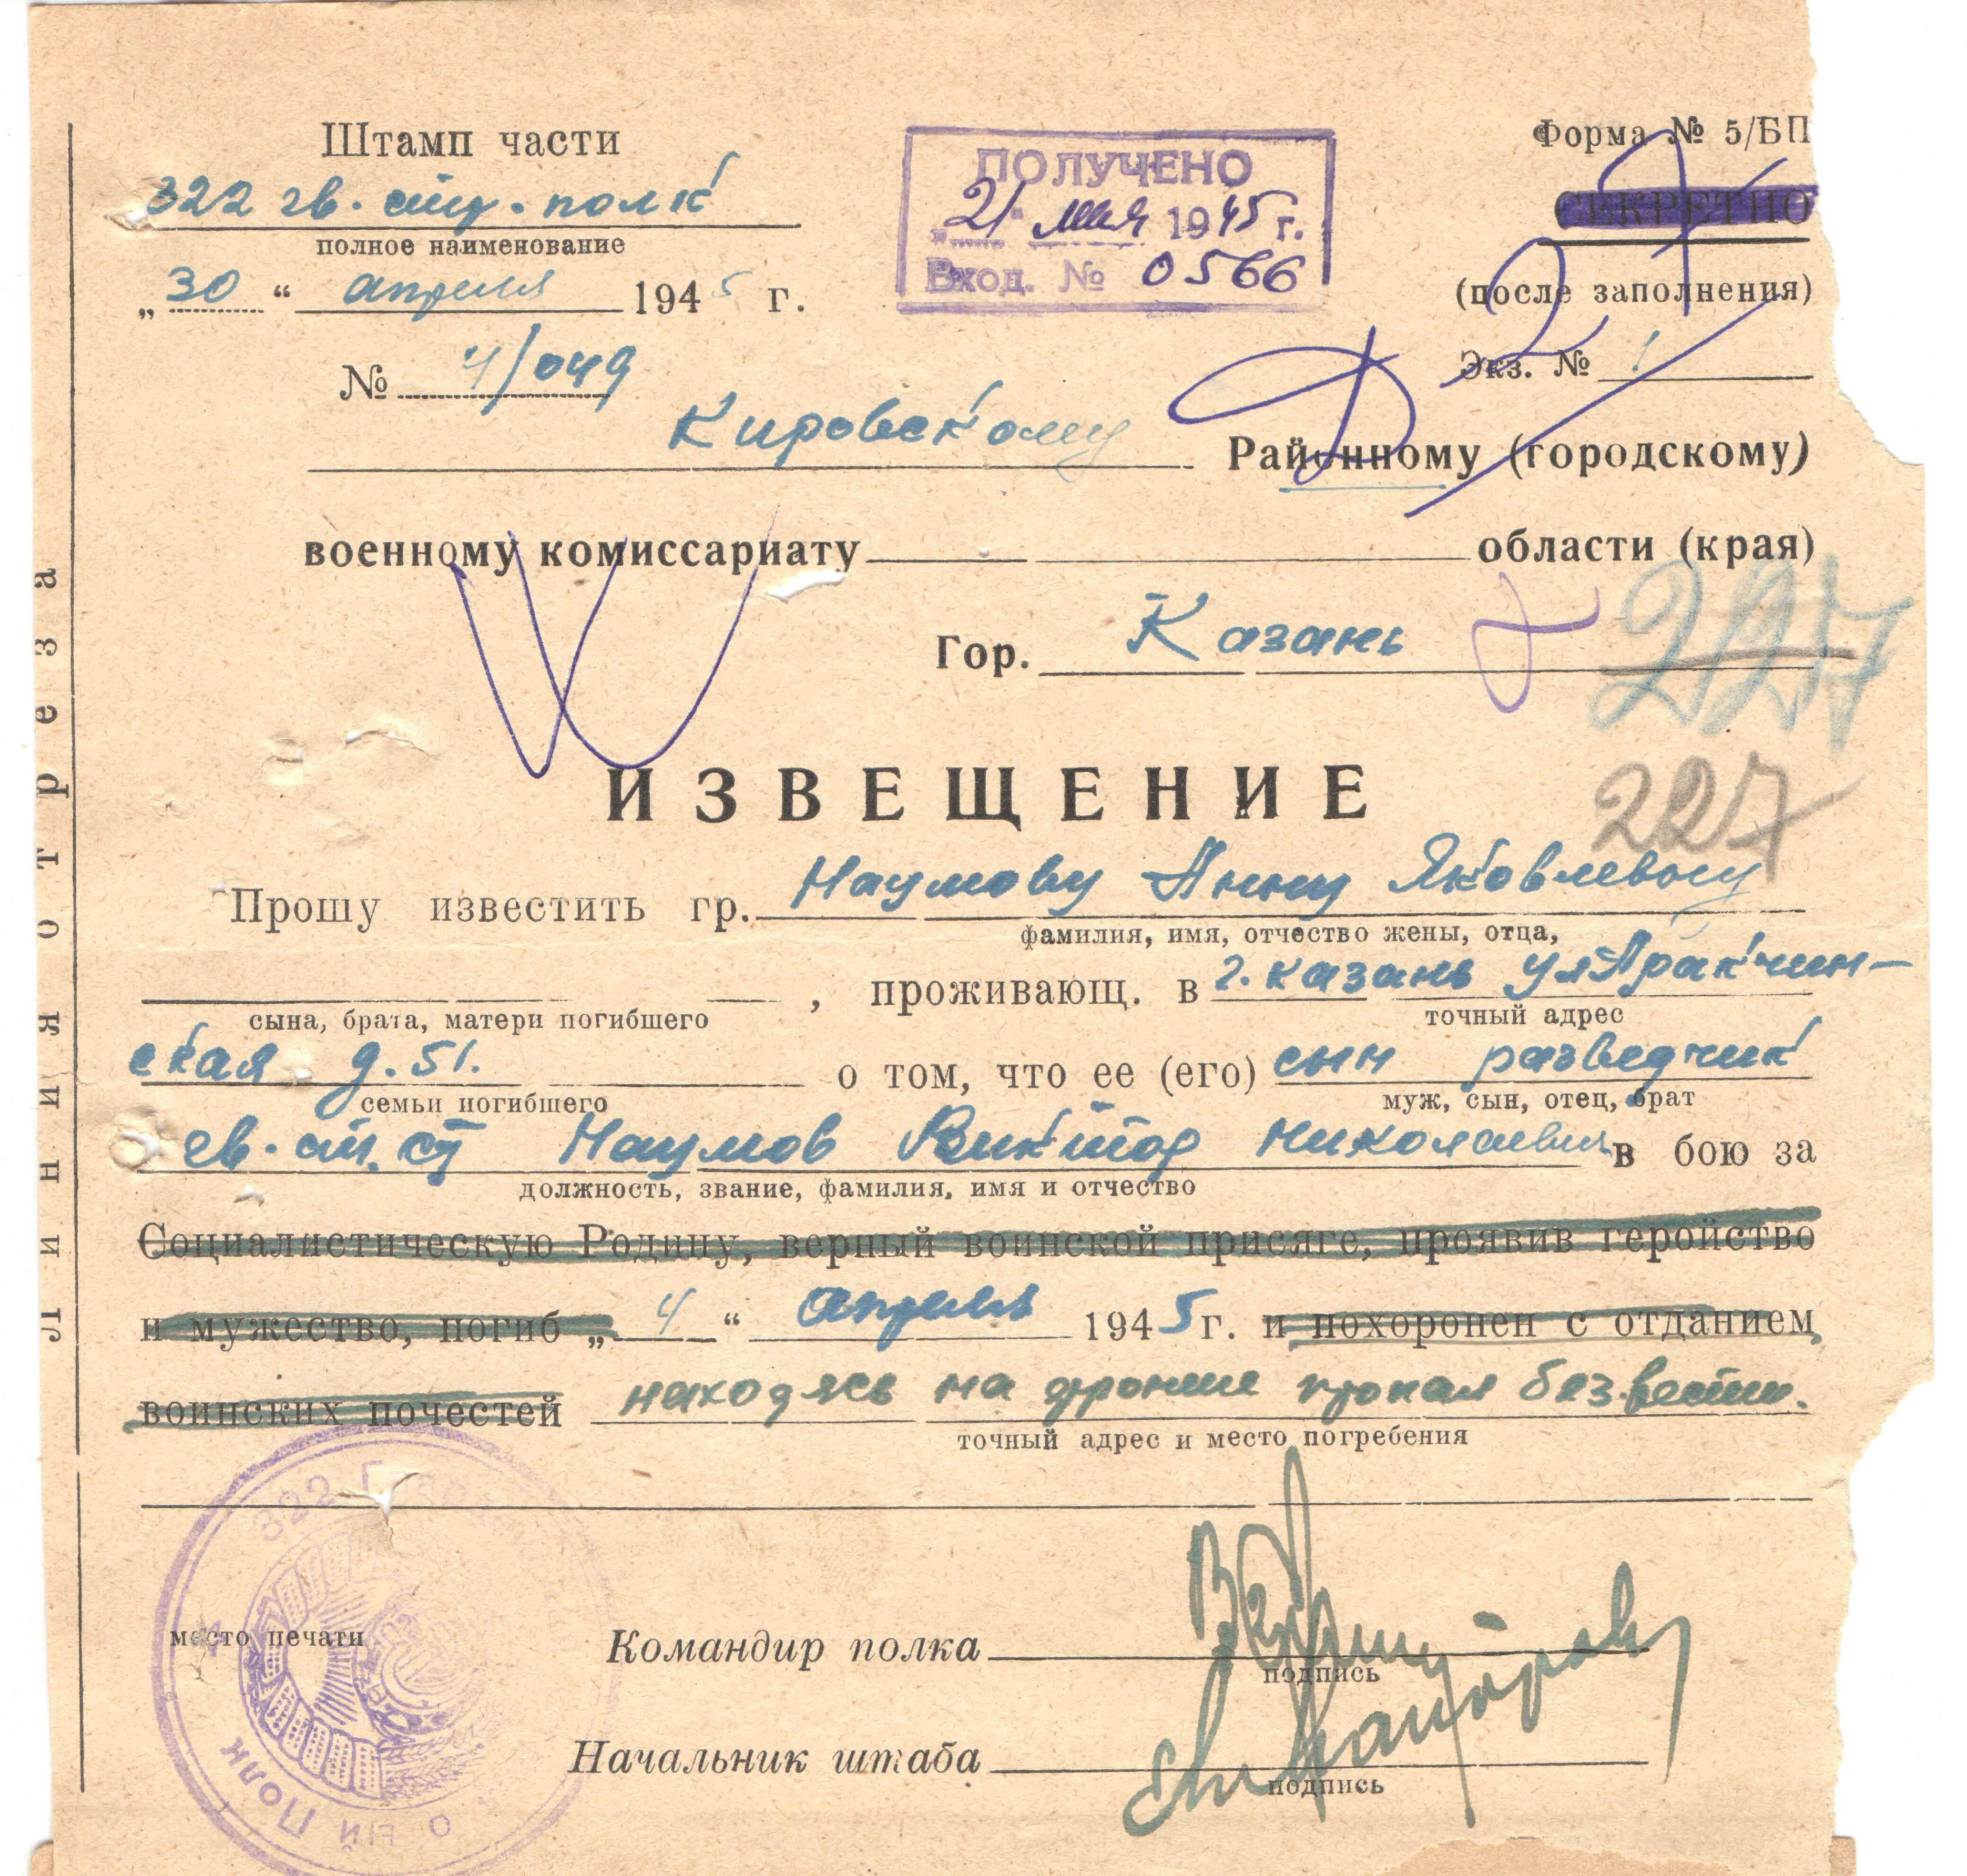 Штамп части
322 гв. стр. полк
полное наименование
„30“ апреля 1945 г.
№ 4/049
ПОЛУЧЕНО
„21“ мая 1945 г.
Вход. № 0566
Форма № 5/БП
СЕКРЕТНО
(после заполнения)
Экз. № 1
Кировскому Районному (городскому)
военному комиссариату области (края)
Гор. Казань
227
227
ИЗВЕЩЕНИЕ
Прошу известить гр. Наумову Анну Яковлевну
фамилия, имя, отчество жены, отца,
, проживающ. в г. Казань ул Аракчин-
сына, брата, матери погибшего точный адрес
ская д. 51. о том, что ее (его) сын разведчик
семьи погибшего муж, сын, отец, брат
гв. ст. с-т Наумов Виктор Николаевич в бою за
должность, звание, фамилия, имя и отчество
Социалистическую Родину, верный воинской присяге, проявив геройство
и мужество, погиб „4“ апреля 1945 г. и похоронен с отданием
воинских почестей находясь на фронте пропал без вести.
точный адрес и место погребения
место печати
322 Г
Полк
Командир полка
подпись
Начальник штаба
подпись
Линия отреза